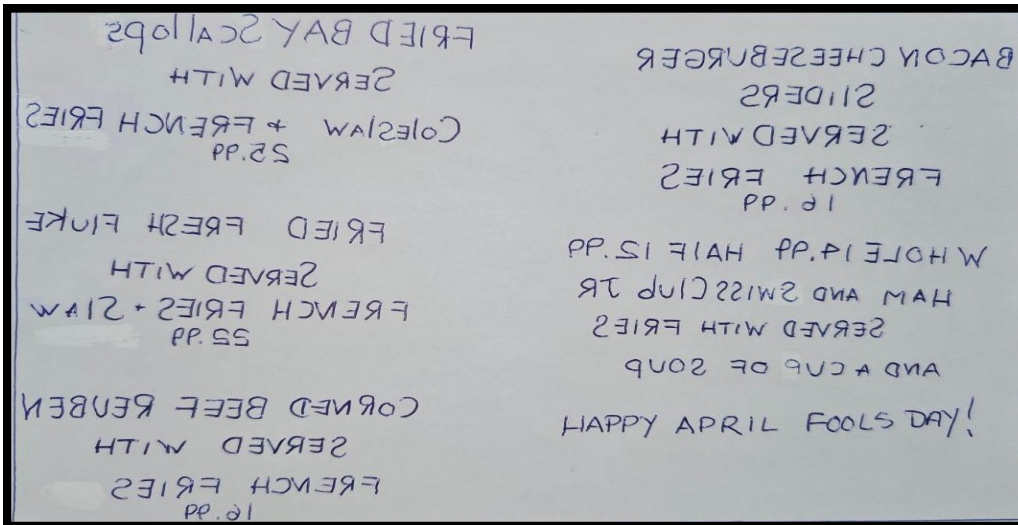 FRIED BAY Scallops
SERVED WITH
Coleslaw + FRENCH FRIES
25.99
FRIED FRESH FlUKE
SERVED WITH
FRENCH FRIES + SlAW
22.99
CORNED BEEF REUBEN
SERVED WITH
FRENCH FRIES
16.99
BACON CHEESEBURGER
SlIDERS
SERVED WITH
FRENCH FRIES
16.99
WHOLE 14.99 HAlF 12.99
HAM AND SWISS Club JR
SERVED WITH FRIES
AND A CUP OF SOUP
HAPPY APRIL FOOLS DAY!